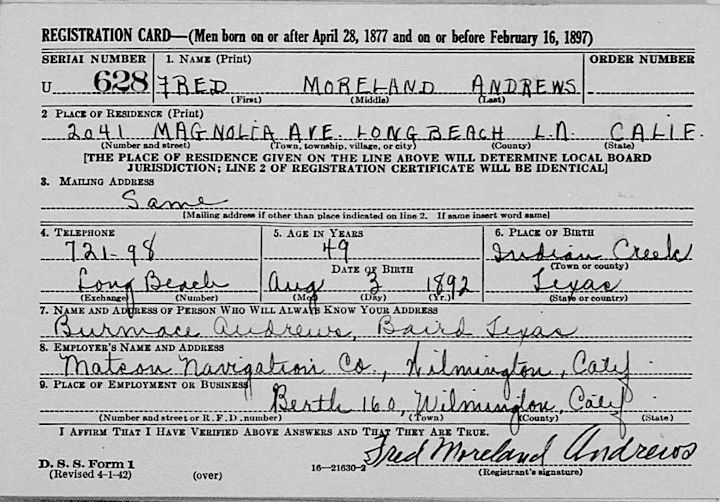 REGISTRATION CARD—(Men born on or after April 28, 1877 and on or before February 16, 1897)
SERIAL NUMBER 1. NAME (Print) ORDER NUMBER
U 628 FRED MORELAND ANDREWS
(First) (Middle) (Last)
2 PLACE OF RESIDENCE (Print)
2041 MAGNOLIA AVE. LONG BEACH L.A. CALIF.
(Number and street) (Town, township, village, or city) (County) (State)
[THE PLACE OF RESIDENCE GIVEN ON THE LINE ABOVE WILL DETERMINE LOCAL BOARD
JURISDICTION; LINE 2 OF REGISTRATION CERTIFICATE WILL BE IDENTICAL]
3. MAILING ADDRESS
Same
[Mailing address if other than place indicated on line 2. If same insert word same]
4. TELEPHONE 5. AGE IN YEARS 6. PLACE OF BIRTH
721-98 49 Indian Creek
DATE OF BIRTH (Town or county)
Long Beach Aug 3 1892 Texas
(Exchange) (Number) (Mo.) (Day) (Yr.) (State or country)
7. NAME AND ADDRESS OF PERSON WHO WILL ALWAYS KNOW YOUR ADDRESS
Burmace Andrews, Baird Texas
8. EMPLOYER'S NAME AND ADDRESS
Matson Navigation Co., Wilmington, Calif.
9. PLACE OF EMPLOYMENT OR BUSINESS
Berth 160, Wilmington, Calif
(Number and street or R. F. D. number) (Town) (County) (State)
I AFFIRM THAT I HAVE VERIFIED ABOVE ANSWERS AND THAT THEY ARE TRUE.
Fred Moreland Andrews
D. S. S. Form 1
(Revised 4-1-42) (over) 16—21630-2 (Registrant's signature)